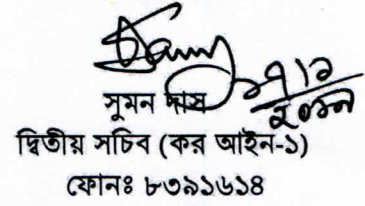 সুমন দাস
দ্বিতীয় সচিব (কর আইন-১)
ফোনঃ ৮৩৯১৬১৪